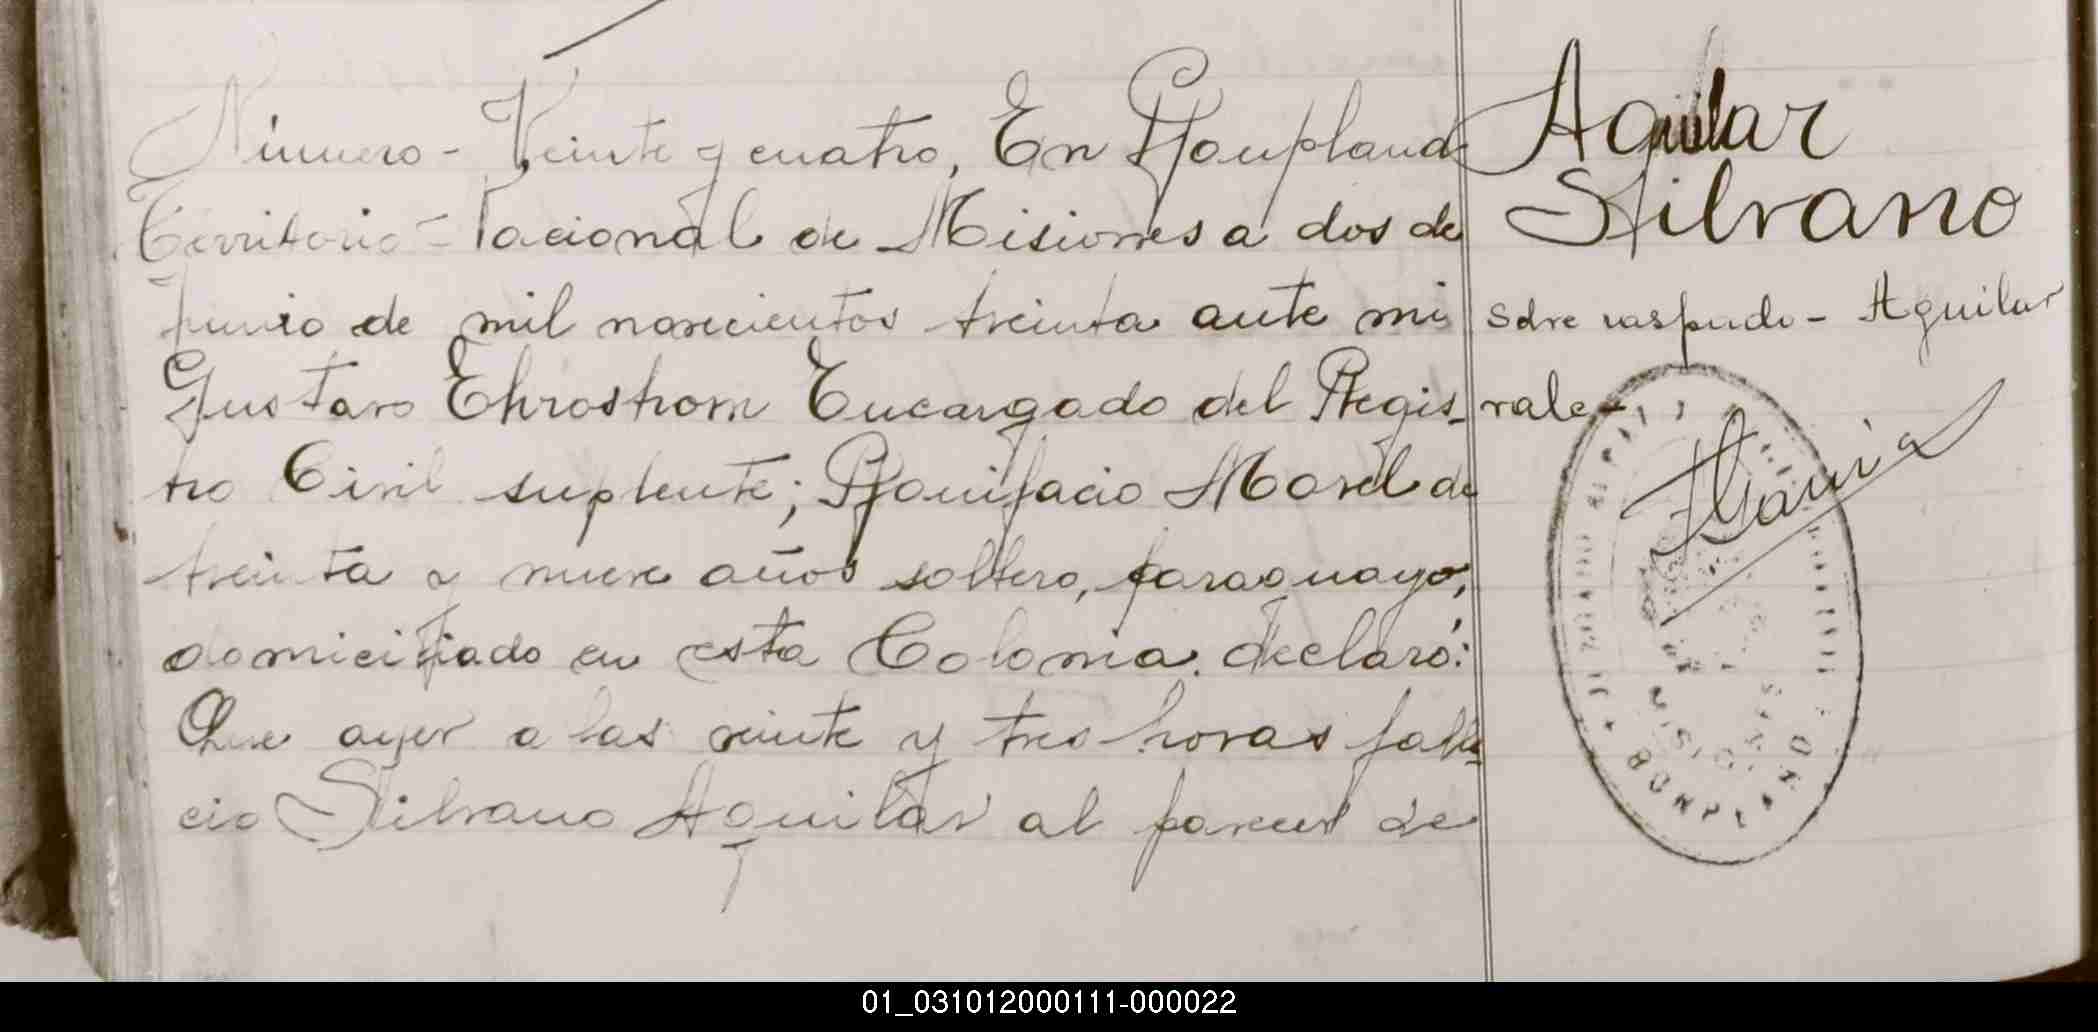 Número - Veinte y cuatro, En Bonpland
Territorio - Nacional de Misiones a dos de
junio de mil novecientos treinta ante mi
Gustavo Ehrostrom Encargado del Regis-
tro Civil suplente; Bonifacio Morel de
treinta y nueve años soltero, paraguayo,
domiciliado en esta Colonia. declaró:
Que ayer a las veinte y tres horas falle-
cio Silvano Aguilar al parecer de
Aguilar
Silvano
sobre raspado - Aguilar
vale -
MISIONES
BONPLAND
01_031012000111-000022